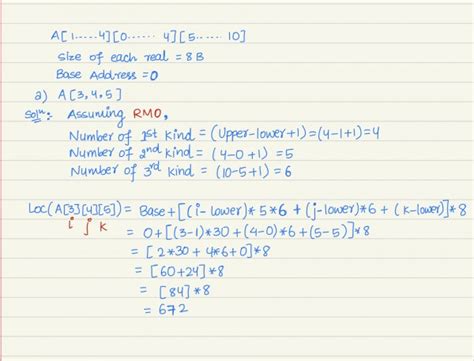 A[1.....4][0...... 4][5...... 10]
Size of each real = 8 B
Base Address = 0
a) A[3,4,5]
Soln: Assuming RMO,
Number of 1st Kind = (Upper-lower+1)=(4-1+1)=4
Number of 2nd kind = (4-0+1) =5
Number of 3rd kind = (10-5+1) =6
Loc(A[3][4][5]) = Base+[(i-lower)*5*6 + (j-lower)*6 + (k-lower)]*8
i j K
= 0+[(3-1)*30 + (4-0)*6 + (5-5)]*8
= [2*30 + 4*6+0]*8
= [60+24]*8
= [84]*8
= 672